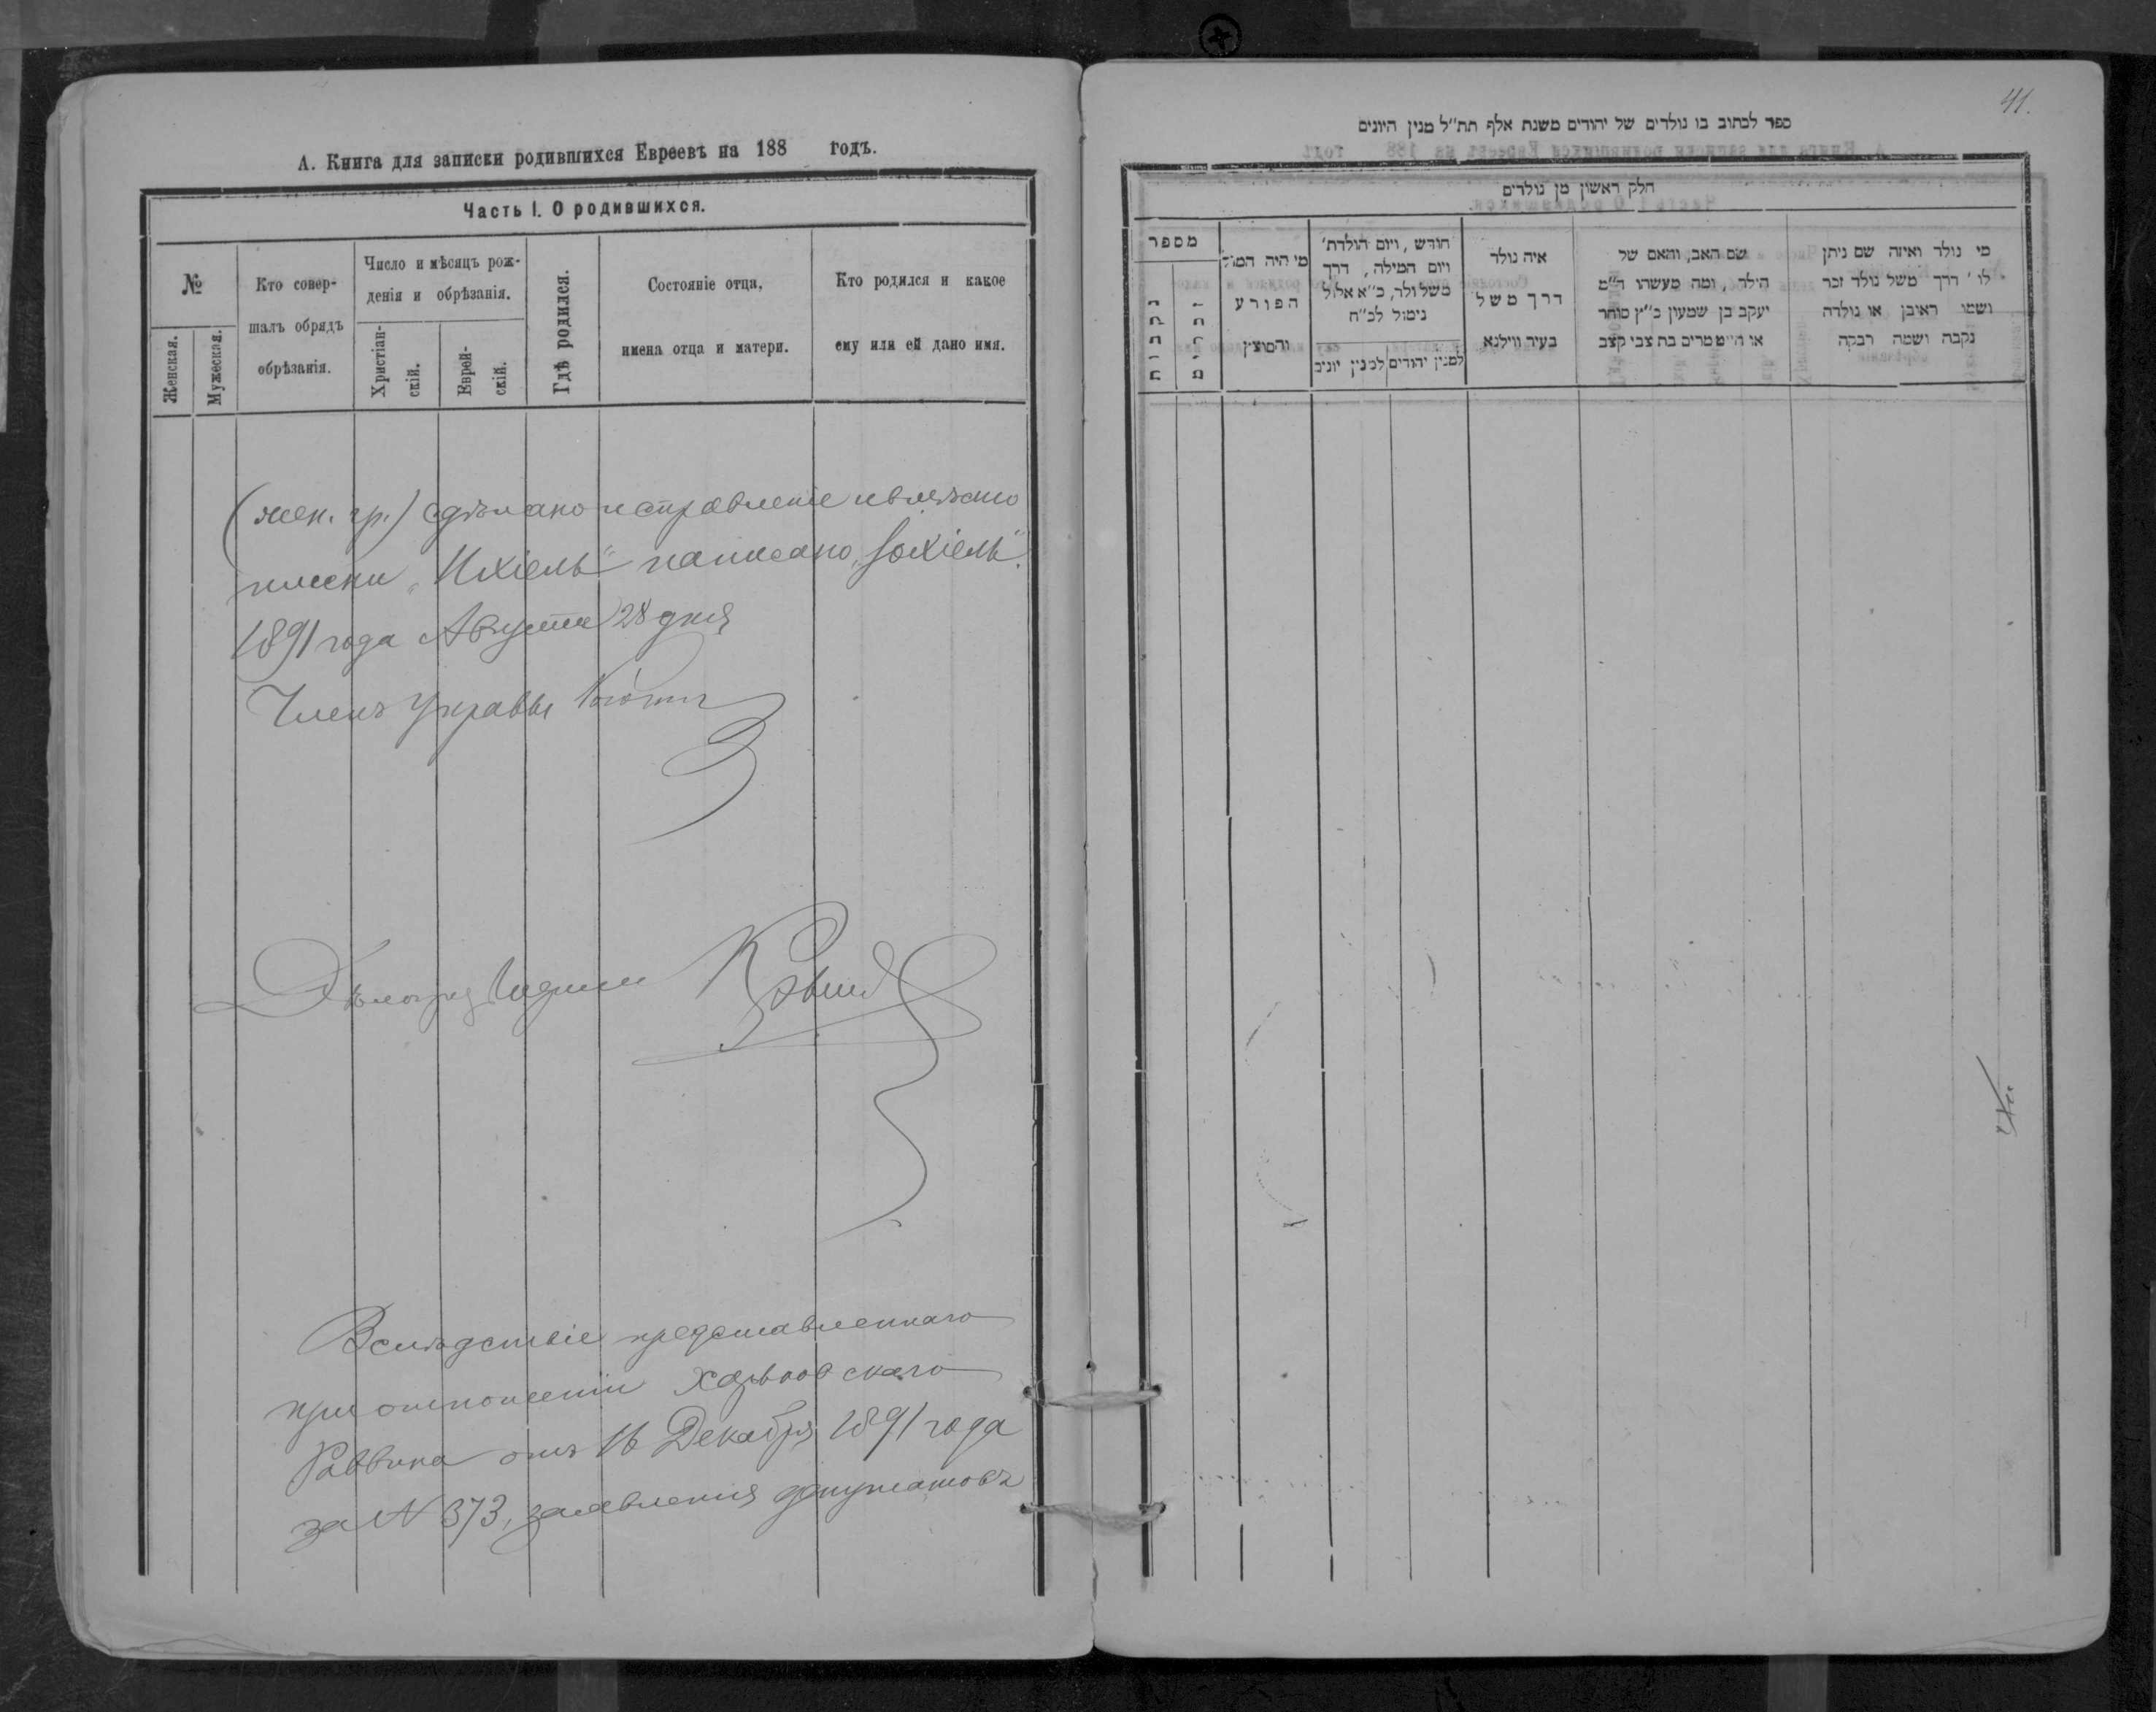 А. Книга для записки родившихся Евреевъ на 188 годъ.
Часть I. О родившихся.
№
Женская.
Мужеская.
Кто совер-
шалъ обрядъ
обрѣзанія.
Число и мѣсяцъ рож-
денія и обрѣзанія.
Христіан-
скій.
Еврей-
скій.
Гдѣ родился.
Состояніе отца,
имена отца и матери.
Кто родился и какое
ему или ей дано имя.
(жен. гр.) сдѣлано исправленіе и вмѣсто
"Ихіель" написано
1891 года Августа 28 дня
Членъ Управы
Вслѣдствіе представленнаго
при отношеніи Харьковскаго
Раввина отъ 16 Декабря 1891 года
за № 373, заявленія депутатовъ
41.
ספר לכתוב בו נולדים של יהודים משנת אלף תת״ל מנין היונים
חלק ראשון מן נולדים
מספר
נקבות
זכרים
מי היה המול
הפורע
והמוצץ
חודש, ויום הולדת׳
ויום המילה, דרך
משל ולד, כ״א אלול
נימול לכ״ח
למנין יהודים
למנין יונים
איה נולד
דרך משל
בעיר ווילנא
שם האב, והאם של
הילד, ומה מעשהו ד״מ
יעקב בן שמעון כ״ץ סוחר
או חייט מרים בת צבי קצב
מי נולד ואיזה שם ניתן
לו׳ דרך משל נולד זכר
ושמו ראובן או נולדה
נקבה ושמה רבקה